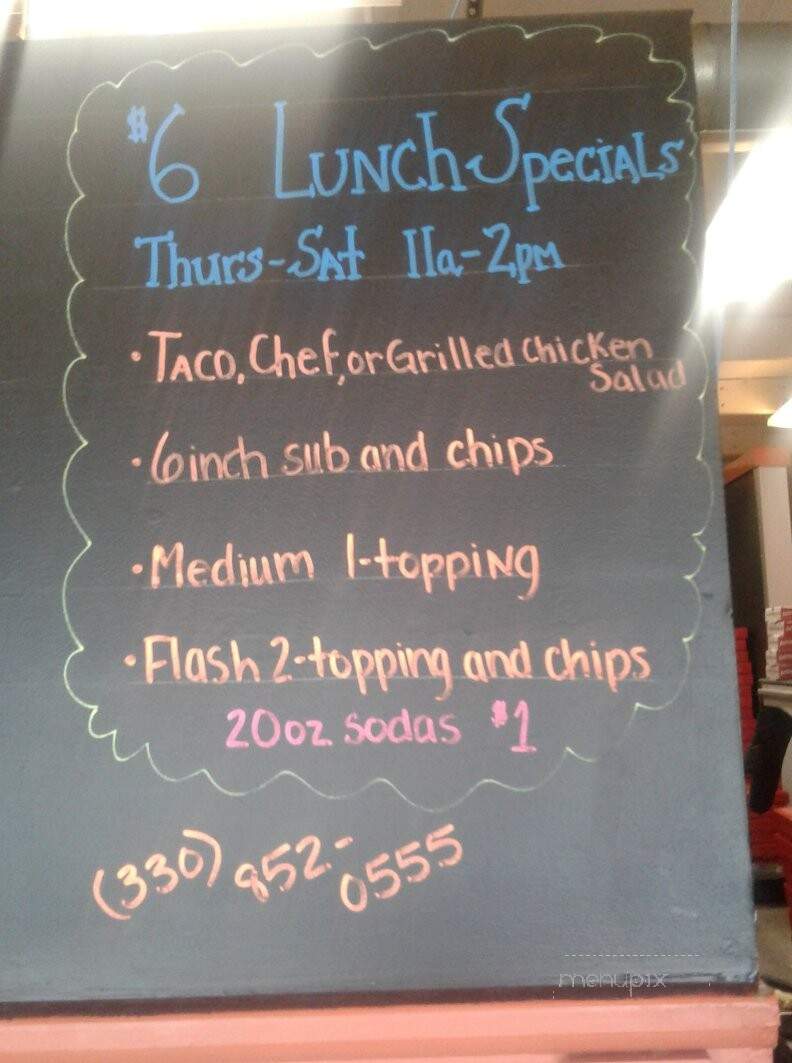 $6 Lunch Specials
Thurs-Sat 11a-2pm
• Taco, Chef, or Grilled Chicken
Salad
• 6 inch sub and chips
• Medium 1-topping
• Flash 2-topping and chips
20oz sodas $1
(330) 852-0555
menupix